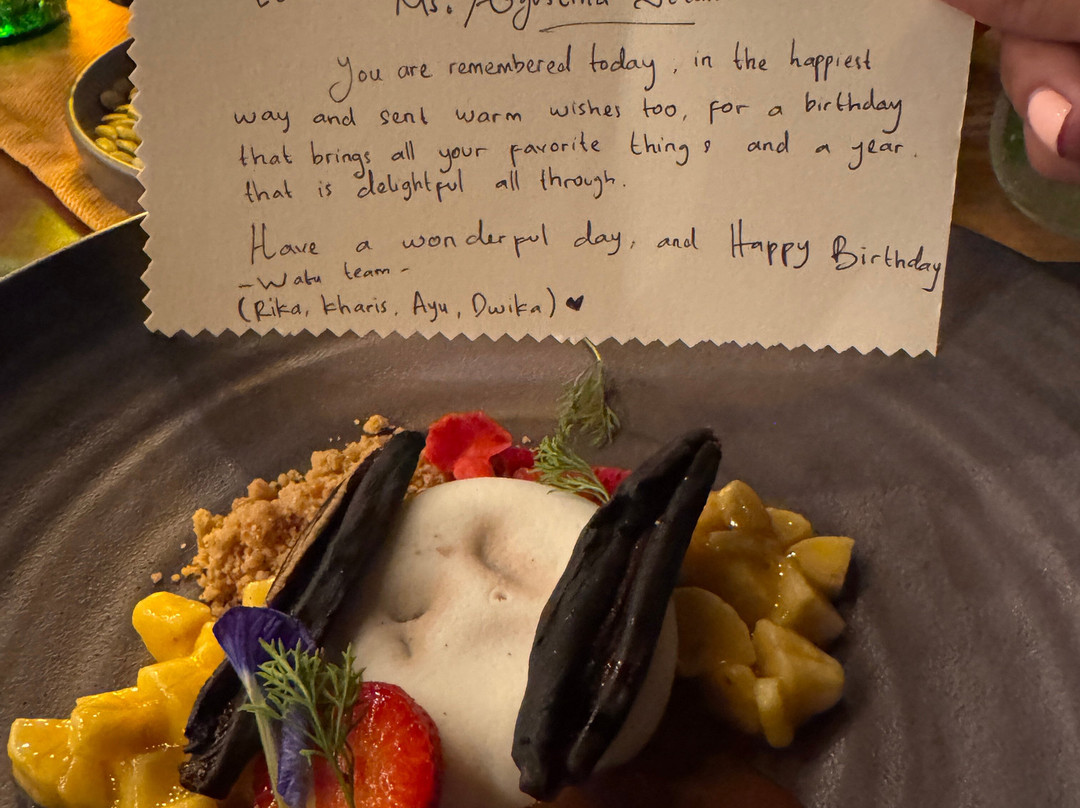 Ms. Agustina
You are remembered today, in the happiest
way and sent warm wishes too, for a birthday
that brings all your favorite things and a year.
that is delightful all through.
Have a wonderful day, and Happy Birthday
- Watu team -
(Rika, Kharis, Ayu, Dwika) ♥